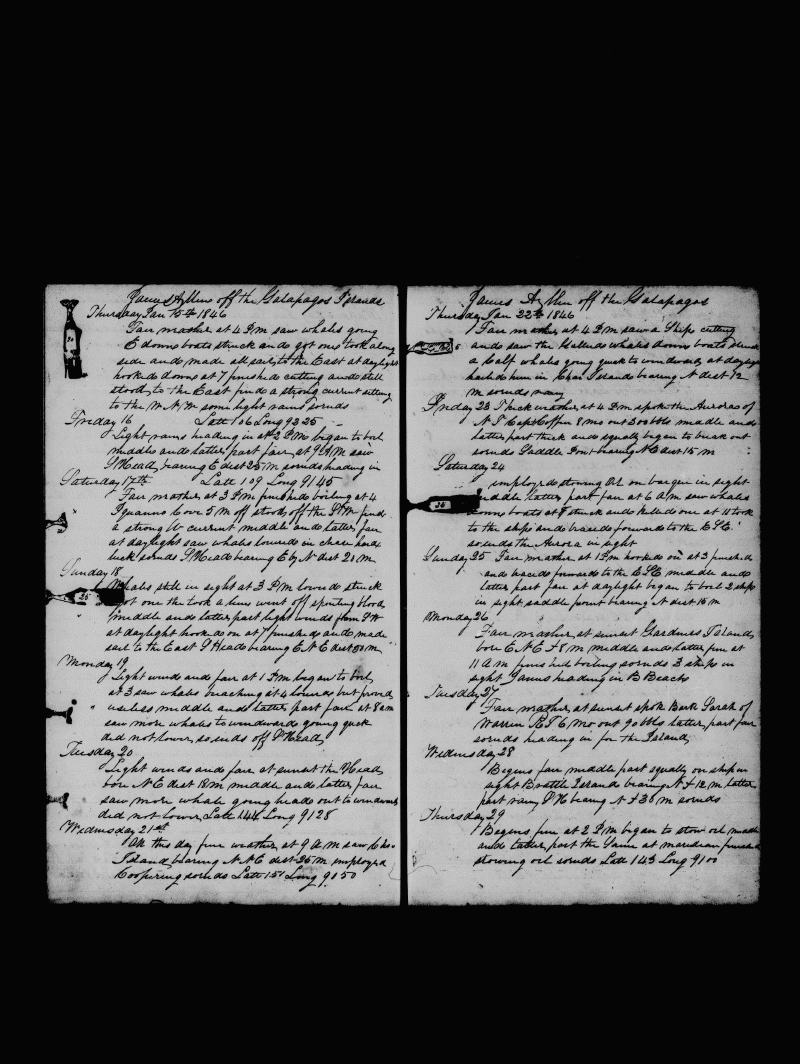 James Allen off the Galapagos Islands
Thursday Jan 15th 1846
Fair weather at 4 PM saw whales going
E down boats struck and got one took along
side and made all sail to the East at daylight
hooked down at 7 finished cutting and still
stood to the East find a strong current setting
to the W N W some light rains so ends
Friday 16 Latt 1 06 Long 93 25
Light rains heading in at 2 PM began to boil
middle and latter part fair at 9 AM saw
P Head bearing E dist 25 m so ends heading in
Saturday 17th Latt 1 09 Long 91 45
Fair weather at 3 PM finished boiling at 4
Iguanno Cove 5 M off stood off the PM find
a strong W current middle and latter fair
at daylight saw whales lowerd in chase hard
luck so ends P Head bearing E by N dist 20 m
Sunday 18
Whales still in sight at 3 PM lowerd struck
got one the took a line went off spouting blood
middle and latter part light winds from
at daylight hook on at 7 finished and made
sail to the East P Head bearing E N E dist 50 m
Monday 19
Light winds and fair at 1 PM began to boil
at 3 saw whales breaching at 4 lowerd but proved
useless middle and latter part fair at 8 am
saw more whales to windward going quck
did not lower so ends off P Head
Tuesday 20
Light winds and fair at sunset the Head
bore N E dist 18 m middle and latter fair
saw more whale going heads out to windward
did not lower Latt 144 Long 91 28
Wednesday 21st
On this day fine weather at 9 AM saw Chs
Island bearing N N E dist 25 m employed
Coopering so ends Latt 151 Long 90 50
James Allen off the Galapagos
Thursday Jan 22th 1846
Fair weather at 4 PM saw a Ship cutting
and saw the whales down boats struck
a Calf whales going quck to windward at daylight
hauld down in Chas Islands bearing N dist 12
m so ends
Friday 23 Thick weather at 4 PM spoke the Aurora of
N T Capt Coffin 8 mos out 300 bbls middle and
latter part thick and squally began to break out
so ends Saddle Point bearing N E dist 15 m
Saturday 24
employd stowing Oil on barque in sight
middle latter part fair at 6 A M saw whales
down boats at 8 struck and killed one at 11 took
to the ship and braced forward to the E S E
so ends the Aurora in sight
Sunday 25 Fair weather at 1 PM hooked on at 3 finished
and braced forward to the E S E middle and
latter part fair at daylight began to boil 2 ships
in sight saddle point bearing N dist 15 m
Monday 26
Fair weather at sunset Gardners Islands
bore E N E 8 m middle and latter fine at
11 A M finished boiling so ends 3 ships in
sight James heading in B Beach
Tuesday 27
Fair weather at sunset spok Bark Sarah of
Warren R I 6 mo out 90 bbls latter part fair
so ends heading in for the Island
Wednesday 28
Begins fair middle part squally on ship in
sight Brattle Island bearing N 12 m latter
part rainy P H bearing N 30 m so ends
Thursday 29
Begins fine at 2 PM began to stow oil middle
and latter part the Same at meridian finished
stowing oil so ends Latt 143 Long 91 00